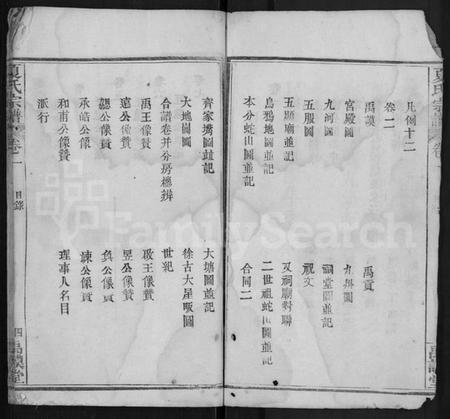 夏氏宗譜 卷
凡例十二
卷二
禹謨 禹貢
宮殿圖 九州圖
九河圖 祠堂圖並記
五服圖 祝文
五顯廟並記 又祠廟對聯
烏鴉地圖並記 二世祖蛇山圖並記
本分蛇山圖並記 合同二
齊家塆圖並記 大塘圖並記
大地圖 徐古大星畈圖
合譜卷并分房總辨 世紀
禹王像贊 啟王像贊
遠公像贊 昱公像贊
勰公像贊 負公像贊
承皓公像 諫公像贊
和甫公像贊 理事人名目
派行
夏氏宗譜 卷一
目錄
四 禹謨堂
FamilySearch